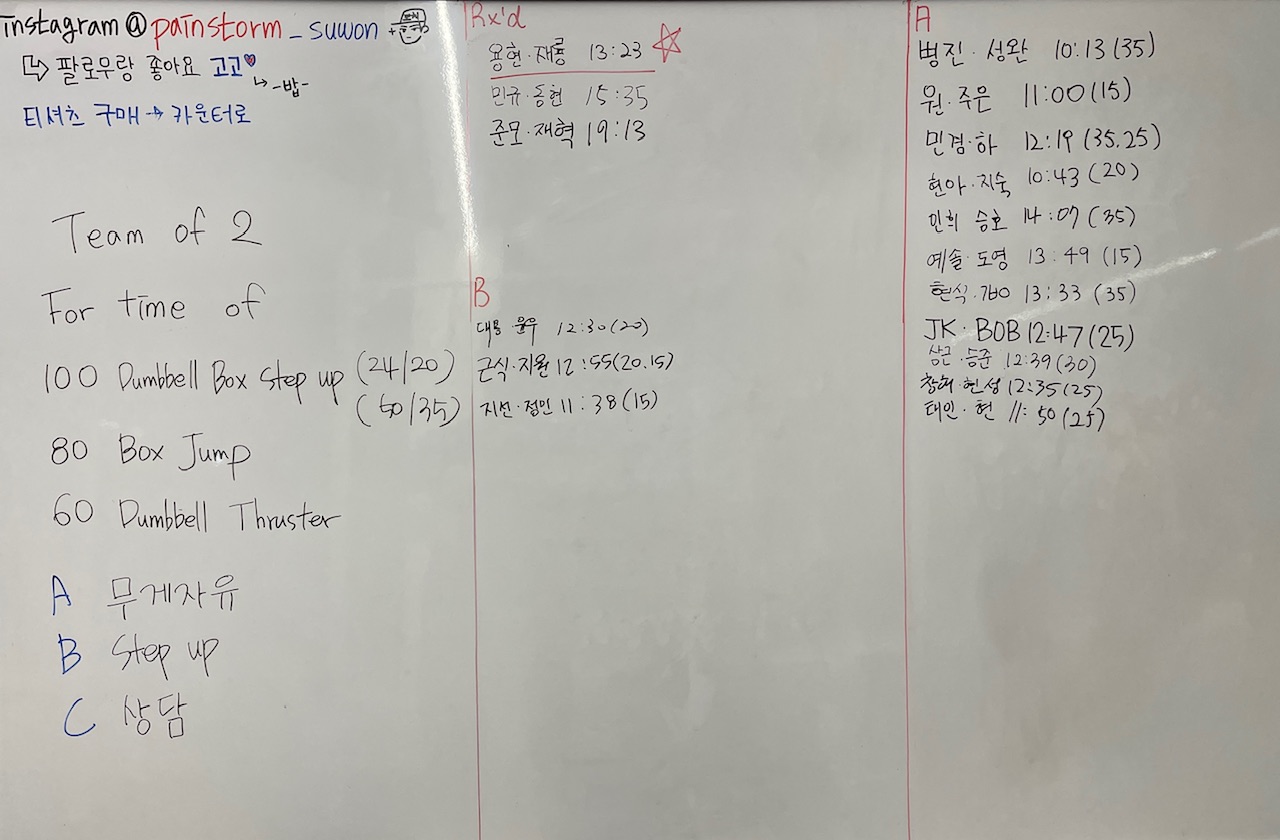 instagram@painstorm_suwon
팔로우랑 좋아요 고고
-밥-
티셔츠 구매→카운터로
Team of 2
For time of
100 Dumbbell Box Step up (24/20)
(50/35)
80 Box Jump
60 Dumbbell Thruster
A 무게자유
B Step up
C 상담
Rx'd
용현·재룡 13:23
민규·동현 15:35
준모·재혁 19:13
B
12:30(20)
근식·지완 12:55(20.15)
지선·정민 11:38(15)
A
병진·성완 10:13(35)
원·주은 11:00(15)
민겸·하 12:19(35.25)
현아·지숙 10:43(20)
민희 승호 14:07(35)
예솔·도영 13:49(15)
현식· 13:33(35)
JK·BOB 12:47(25)
상근·승준 12:39(30)
12:35(25)
태인·현 11:50(25)